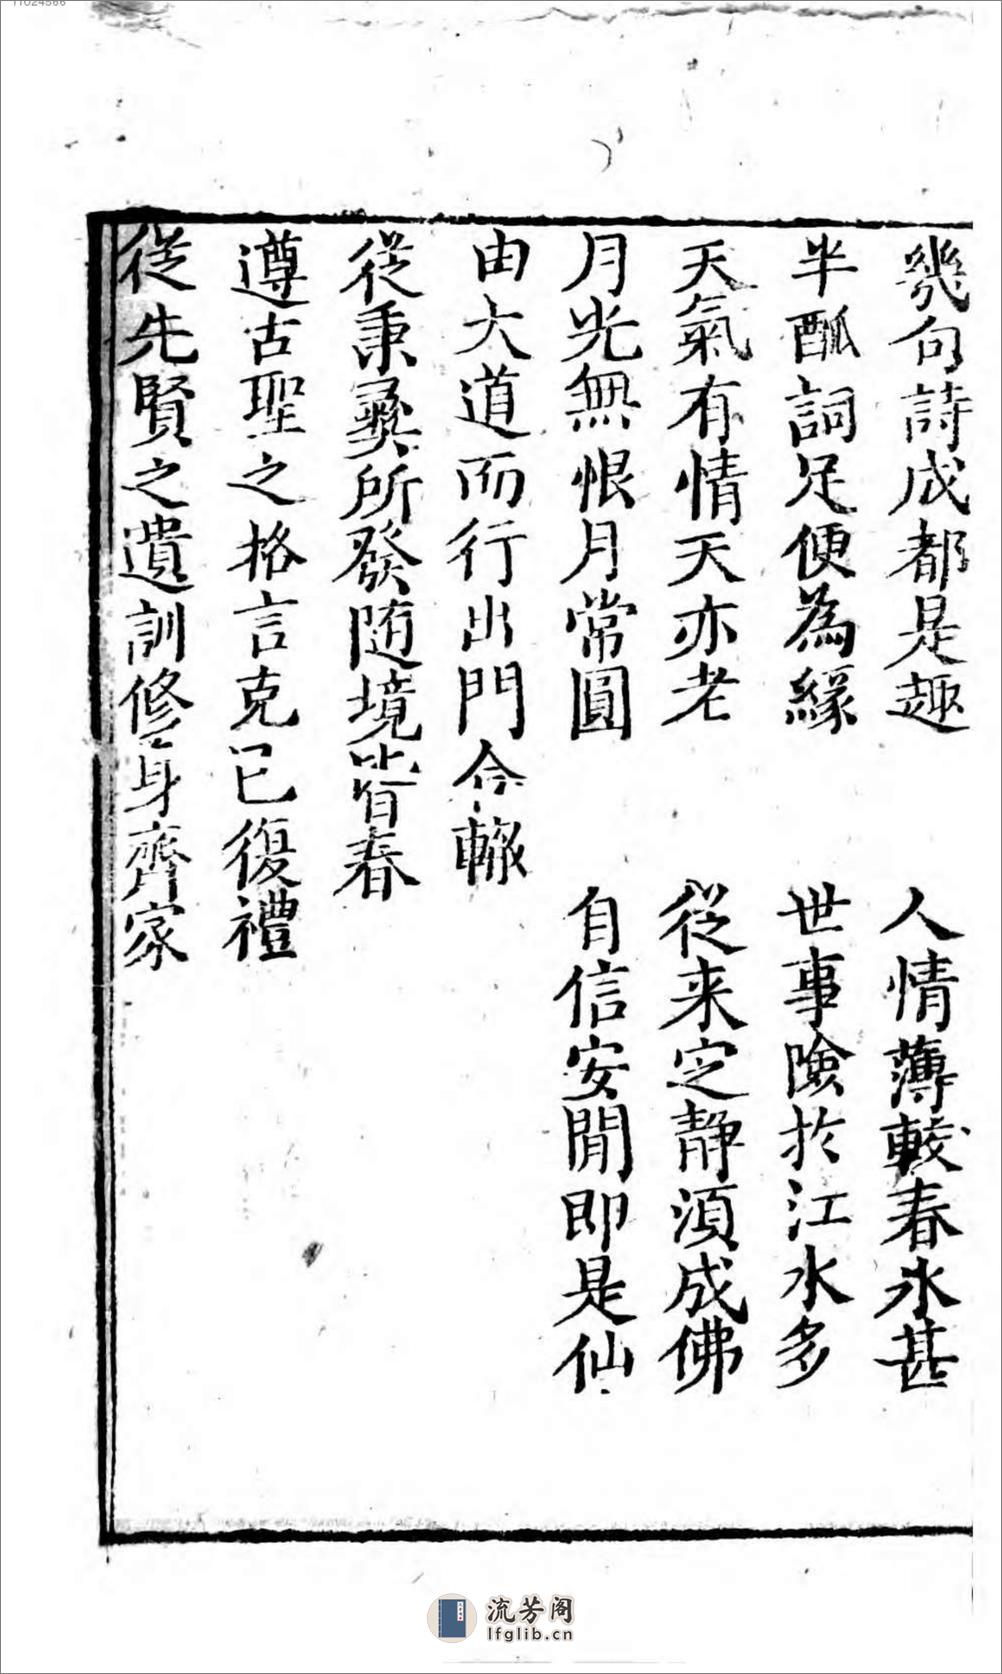 11024566
幾句詩成都是趣　人情薄較春冰甚
半瓢詞足便為緣　世事險於江水多
天氣有情天亦老　從来定静須成佛
月光無恨月常圓　自信安閒即是仙
由大道而行出門合轍
從秉彝所發随境皆春
遵古聖之格言克已復禮
從先賢之遺訓修身齊家
流芳阁
lfglib.cn